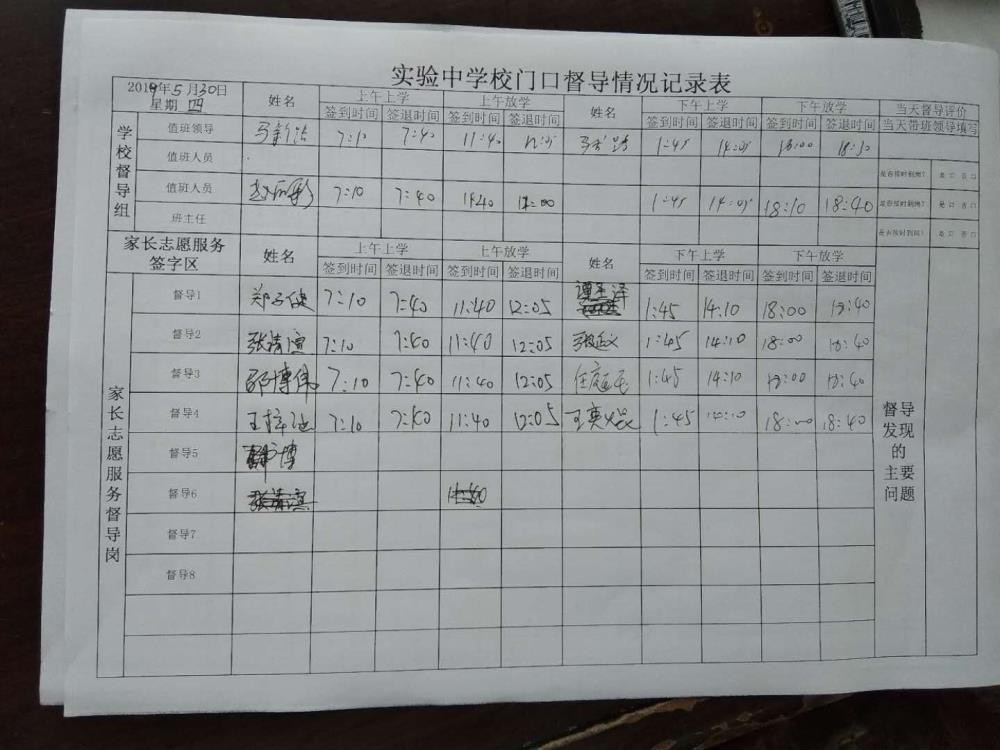 实验中学校门口督导情况记录表
2019年5月30日
星期 四
姓名 上午上学 上午放学 姓名 下午上学 下午放学 当天督导评价
签到时间 签退时间 签到时间 签退时间 签到时间 签退时间 签到时间 签退时间 当天带班领导填写
学校督导组
值班领导 7:10 7:40 11:40 1:45 14:05 18:00 18:30
值班人员 是否按时到岗? 是□ 否□
值班人员 7:10 7:40 1140 12:00 1:45 14:05 18:10 18:40 是否按时到岗? 是□ 否□
班主任 是否按时到岗? 是□ 否□
家长志愿服务签字区 姓名 上午上学 上午放学 姓名 下午上学 下午放学
签到时间 签退时间 签到时间 签退时间 签到时间 签退时间 签到时间 签退时间
家长志愿服务督导岗
督导1 7:10 7:40 11:40 12:05 1:45 14:10 18:00 18:40
督导2 张靖宜 7:10 7:40 11:40 12:05 1:45 14:10 18:00 18:40
督导3 邵博伟 7:10 7:40 11:40 12:05 1:45 14:10 18:00 18:40
督导4 7:10 7:40 11:40 12:05 王奕焜 1:45 14:10 18:00 18:40
督导5
督导6
督导7
督导8
督导发现的主要问题